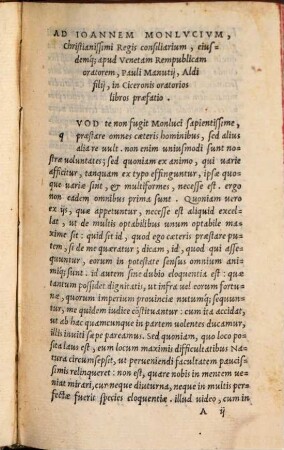 AD IOANNEM MONLVCIVM,
Christianissimi Regis consiliarium, eius-
demq́; apud Venetam Rempublicam
oratorem, Pauli Manutij, Aldi
filij, in Ciceronis oratorios
libros præfatio.
q VOD te non fugit Monluci sapientissime,
præstare omnes cæteris hominibus, sed alius
alia re vult. non enim uniusmodi sunt no
stræ voluntates; sed quoniam ex animo, qui varie
afficitur, tanquam ex typo effinguntur, ipsæ quo
que variæ sint, & multiformes, necesse est. ergo
non eadem omnibus prima sunt. Quoniam vero
ex ijs, quæ appetuntur, necesse est aliquid excel-
lat, ut de multis optabilibus unum optabile ma
xime sit: quid sit id, quod ego cæteris præstare pu-
tem, si de me quæratur; dicam, id, quod qui asse-
quuntur, eorum in potestate sensus omnium ani-
miq́; sunt. id autem sine dubio eloquentia est: quæ
tantum possidet dignitatis, ut infra uel eorum fortu-
nã, quorum imperium prouincie nutumq́; sequun-
tur, me quidem iudice cõstituantur: cum ita accidat,
ut ab hac quamcunque in partem uolentes ducamur,
illis inuiti sæpe pareamus. Sed quoniam, quo loco
posita laus est, eum locum maximis difficultatibus Na
tura circumsepsit, ut perueniendi facultatem paucis-
simis relinqueret: non est, quare nobis in mentem ue-
niat mirari, cur neque diuturna, neque in multis per-
fectæ fuerit species eloquentiæ. illud video, cum in
A ij